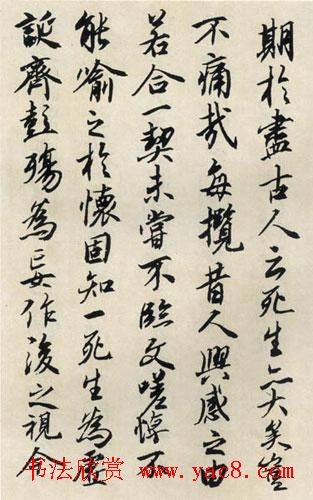 期於盡古人云死生亦大矣豈
不痛哉每攬昔人興感之由
若合一契未嘗不臨文嗟悼不
能喻之於懷固知一死生為虛
誕齊彭殤為妄作後之視今
书法欣赏 www.yac8.com